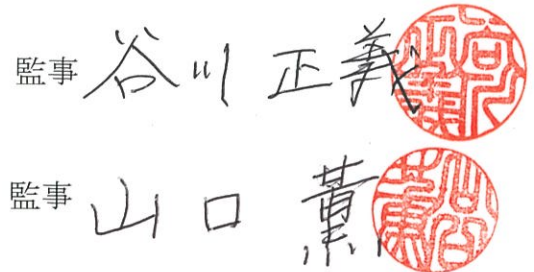 監事 谷川 正義
監事 山口 薫